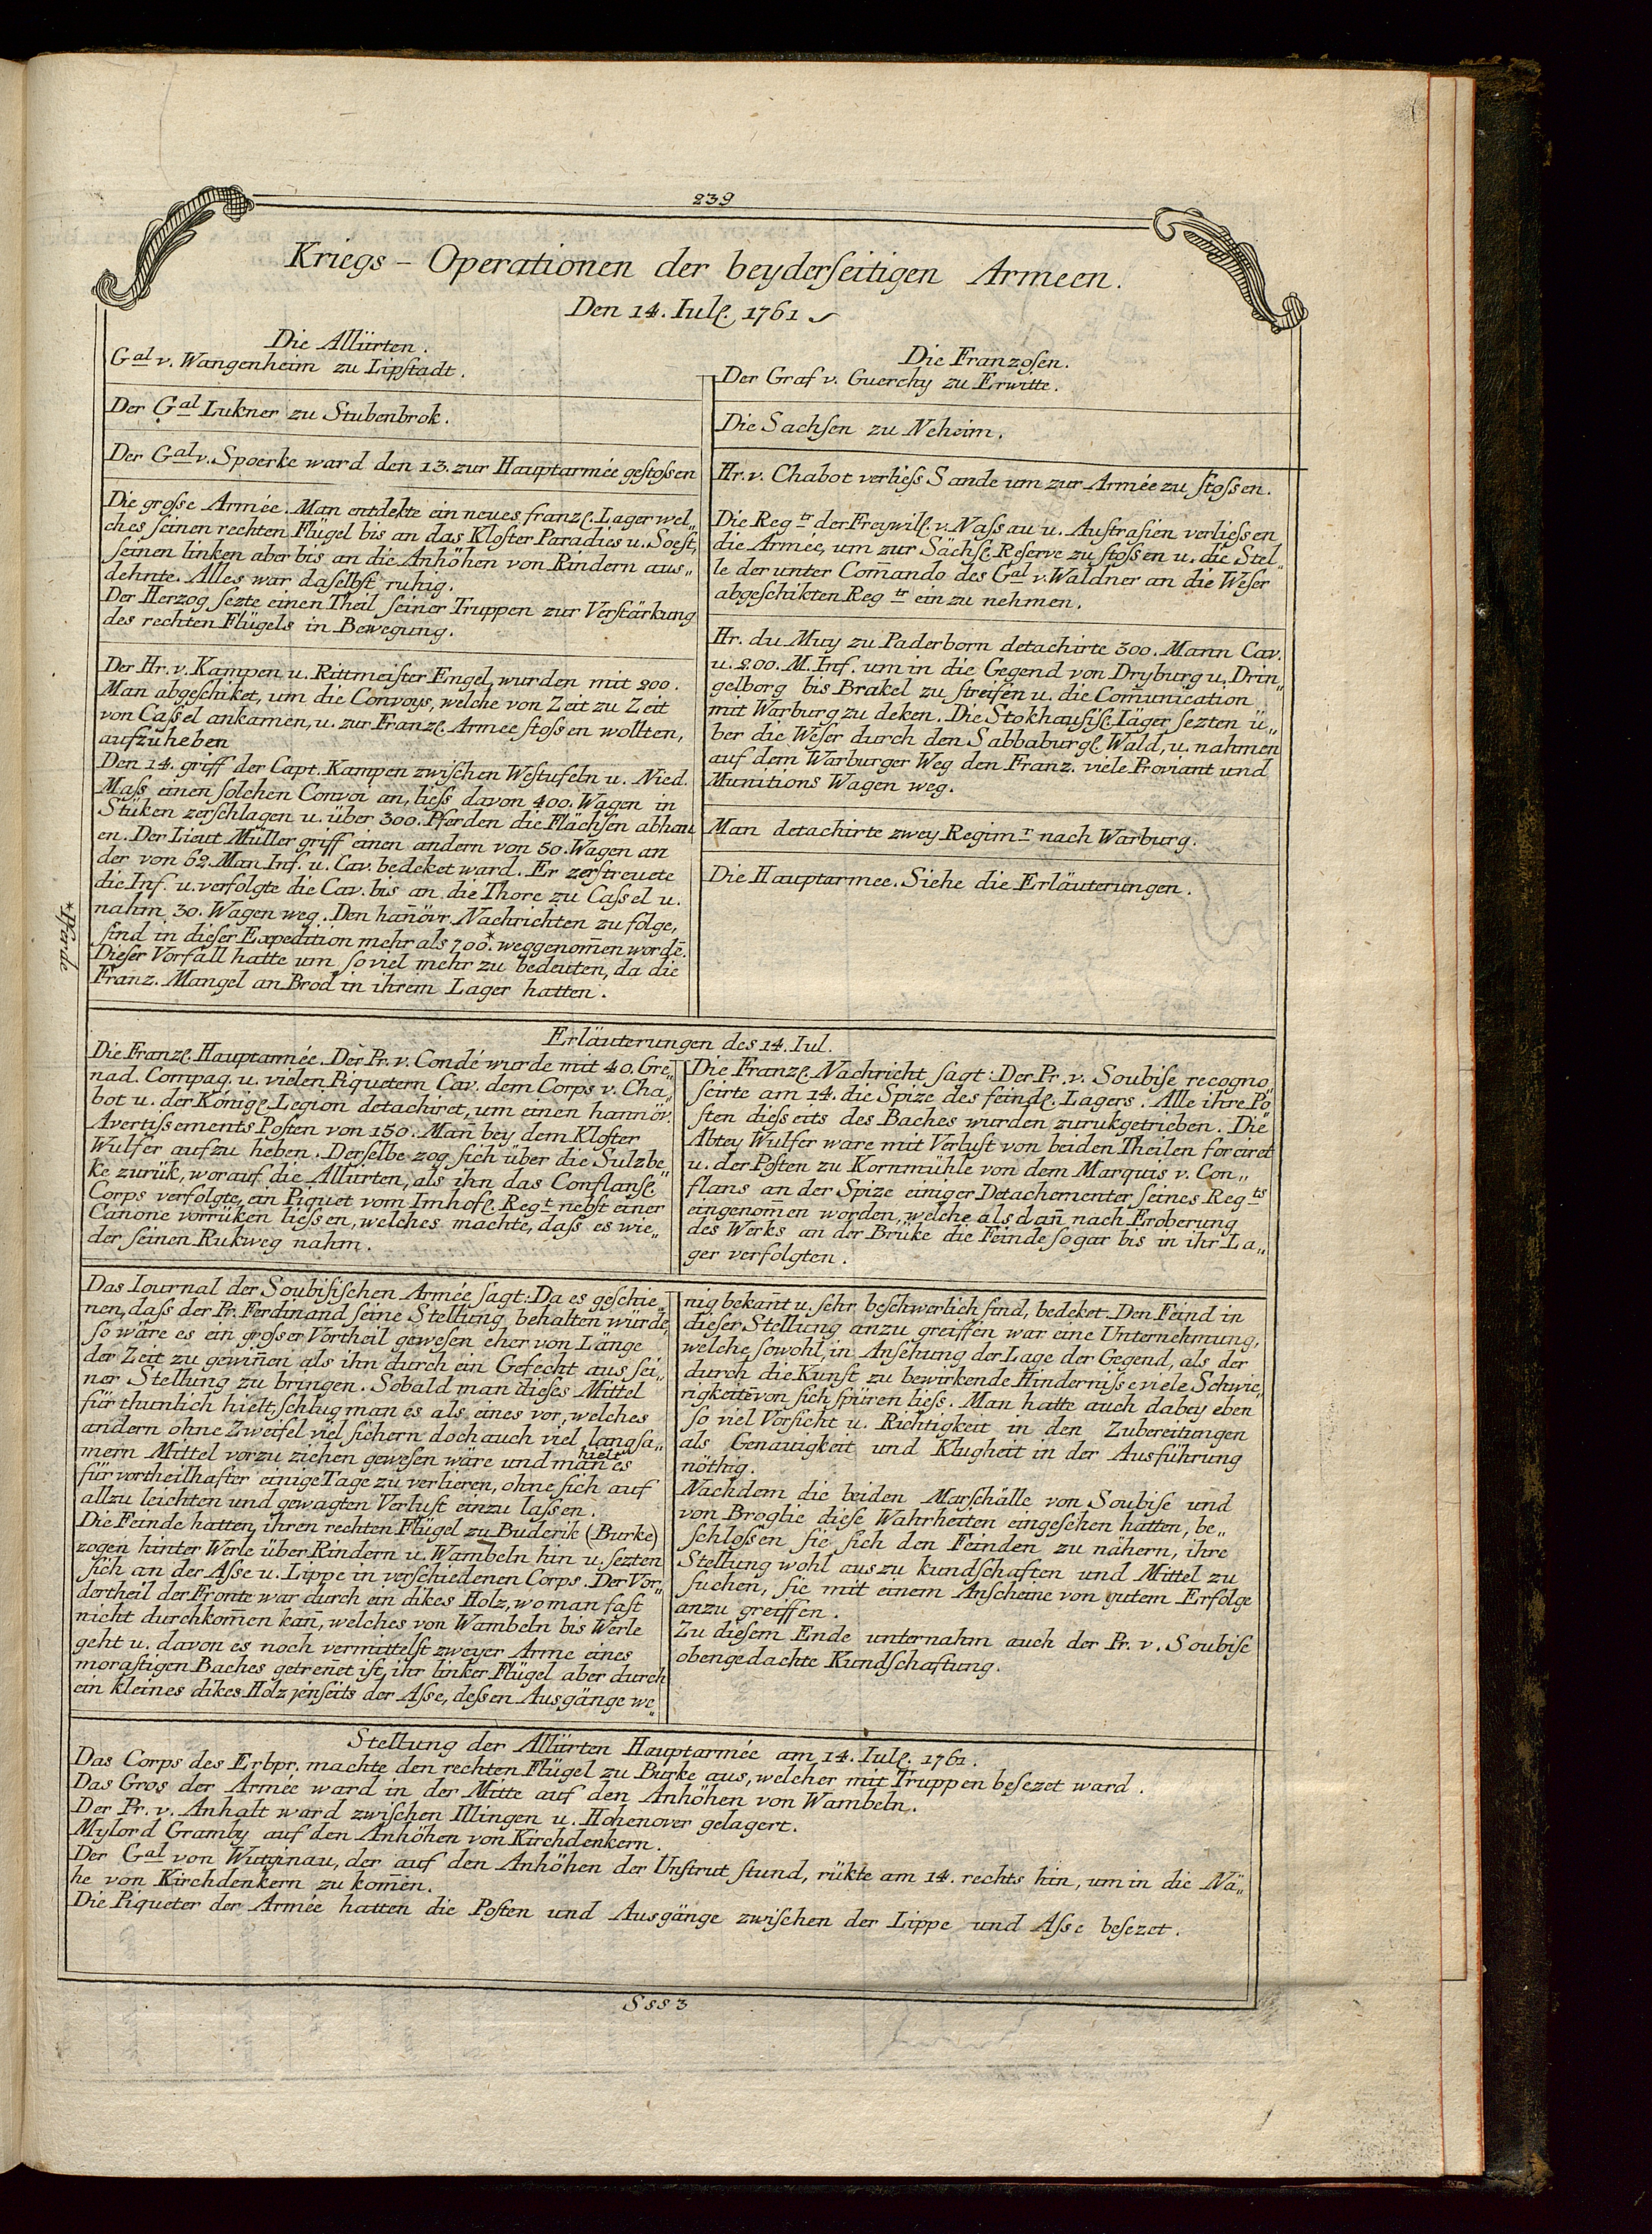 239
Kriegs - Operationen der beyderſeitigen Armeen.
Den 14. Iul. 1761
Die Allürten.
Gal v. Wangenheim zu Lipſtadt.
Der Gal Lukner zu Stubenbrok.
Der Gal v. Spoerke ward den 13. zur Hauptarmée geſtoſsen
Die groſse Armée. Man entdekte ein neues franz. Lager wel„
ches ſeinen rechten Flügel bis an das Kloſter Paradies u. Soeſt,
ſeinen linken aber bis an die Anhöhen von Rindern aus„
dehnte. Alles war daſelbſt ruhig.
Der Herzog ſezte einen Theil ſeiner Truppen zur Verſtärkung
des rechten Flügels in Bewegung.
Der Hr. v. Kampen u. Rittmeiſter Engel, wurden mit 200.
Man abgeſchiket, um die Convoys, welche von Zeit zu Zeit
von Caſsel ankamen, u. zur Franz. Armee ſtoſsen wollten,
aufzuheben
Den 14. griff der Capt. Kampen zwiſchen Weſtufeln u. Nied.
Maſs einen ſolchen Convoi an, lieſs davon 400. Wagen in
Stüken zerſchlagen u. über 300. Pferden die Flächſen abhau
en. Der Lieut Müller griff einen andern von 50. Wagen an
der von 62. Man Inf. u. Cav. bedeket ward. Er zerſtreuete
die Inf. u. verfolgte die Cav. bis an die Thore zu Caſsel u.
nahm 30. Wagen weg. Den han̄övr. Nachrichten zu folge,
ſind in dieſer Expedition mehr als 700.* weggenom̄en wordē.
Dieſer Vorfall hatte um ſo viel mehr zu bedeuten, da die
Franz. Mangel an Brod in ihrem Lager hatten.
*Pferde
Die Franzoſen.
Der Graf v. Guerchy zu Erwitte.
Die Sachſen zu Neheim.
Hr. v. Chabot verlieſs Sande um zur Armée zu ſtoſsen.
Die Regtr der Freywill. v. Naſsau u. Auſtraſien verlieſsen
die Armée, um zur Sächſ. Reſerve zu ſtoſsen u. die Stel„
le der unter Com̄ando des Gal v. Waldner an die Weſer
abgeſchikten Regtr einzu nehmen.
Hr. du Muy zu Paderborn detachirte 300. Mann Cav.
u. 200. M. Inf. um in die Gegend von Dryburg u. Drin„
gelborg bis Brakel zu ſtreifen u. die Com̄unication
mit Warburg zu deken. Die Stokhauſiſ. Jäger ſezten ü„
ber die Weſer durch den Sabbaburg. Wald, u. nahmen
auf dem Warburger Weg den Franz. viele Proviant und
Munitions Wagen weg.
Man detachirte zwey Regimr nach Warburg.
Die Hauptarmee. Siehe die Erläuterungen.
Erläuterungen des 14. Iul.
Die Franz. Hauptarmée. Der Pr. v. Condé wurde mit 40. Gre„
nad. Compag. u. vielen Piquetern Cav. dem Corps v. Cha„
bot u. der König. Legion detachiret, um einen hannöv.
Avertiſsements Poſten von 150. Man̄ bey dem Kloſter
Wulfer aufzu heben. Derſelbe zog ſich über die Sulzbe„
ke zurük, worauf die Allürten, als ihn das Conflanſ.
Corps verfolgte, ein Piquet vom Imhof. Regt. nebſt einer
Canone vorrüken lieſsen, welches machte, daſs es wie„
der ſeinen Rukweg nahm.
Die Franz. Nachricht ſagt: Der Pr. v. Soubiſe recogno„
ſcirte am 14. die Spize des feind. Lagers. Alle ihre Po„
ſten dieſseits des Baches wurden zurukgetrieben. Die
Abtey Wulfer ware mit Verluſt von beiden Theilen forciret
u. der Poſten zu Kornmühle von dem Marquis v. Con„
flans an der Spize einiger Detachementer ſeines Regts
eingenom̄en worden, welche als dan̄ nach Eroberung
des Werks an der Brüke die Feinde ſogar bis in ihr La„
ger verfolgten.
Das Iournal der Soubiſiſchen Armée ſagt: Da es geſchie„
nen, daſs der Pr. Ferdinand ſeine Stellung behalten würde,
ſo wäre es ein groſser Vortheil geweſen eher von Länge
der Zeit zu gewin̄en als ihn durch ein Gefecht aus ſei„
ner Stellung zu bringen. Sobald man dieſes Mittel
für thunlich hielt, ſchlug man es als eines vor, welches
andern ohne Zweifel viel ſichern doch auch viel langſa„
mern Mittel vorzu ziehen geweſen wäre und man hielt es
für vortheilhafter einige Tage zu verlieren, ohne ſich auf
allzu leichten und gewagten Verluſt einzu laſsen.
Die Feinde hatten, ihren rechten Flügel zu Buderik (Burke)
zogen hinter Werle über Rindern u. Wambeln hin u. ſezten
ſich an der Aſse u. Lippe in verſchiedenen Corps. Der Vor„
dertheil der Fronte war durch ein dikes Holz, wo man faſt
nicht durchkom̄en kan̄, welches von Wambeln bis Werle
geht u. davon es noch vermittelſt zweyer Arme eines
moraſtigen Baches getren̄et iſt, ihr linker Flügel aber durch
ein kleines dikes Holz jenſeits der Aſse, deſsen Ausgänge we„
nig bekan̄t u. ſehr beſchwerlich ſind, bedeket. Den Feind in
dieſer Stellung anzu greiffen war eine Unternehmung,
welche ſowohl in Anſehung der Lage der Gegend, als der
durch die Kunſt zu bewirkende Hinderniſse viele Schwie„
rigkeitē von ſich ſpüren lieſs. Man hatte auch dabey eben
ſo viel Vorſicht u. Richtigkeit in den Zubereitungen
als Genauigkeit und Klugheit in der Ausführung
nöthig.
Nachdem die beiden Marſchälle von Soubiſe und
von Broglie dieſe Wahrheiten eingeſehen hatten, be„
ſchloſsen ſie ſich den Feinden zu nähern, ihre
Stellung wohl auszu kundſchaften und Mittel zu
ſuchen, ſie mit einem Anſcheine von gutem Erfolge
anzu greiffen.
Zu dieſem Ende unternahm auch der Pr. v. Soubiſe
obengedachte Kundſchaftung.
Stellung der Allürten Hauptarmée am 14. Iul. 1761.
Das Corps des Erbpr. machte den rechten Flügel zu Burke aus, welcher mit Truppen beſezet ward.
Das Gros der Armée ward in der Mitte auf den Anhöhen von Wambeln.
Der Pr. v. Anhalt ward zwiſchen Illingen u. Hohenover gelagert.
Mylord Gramby auf den Anhöhen von Kirchdenkern.
Der Gal von Wutginau, der auf den Anhöhen der Unſtrut ſtund, rükte am 14. rechts hin, um in die Nä„
he von Kirchdenkern zu kom̄en.
Die Piqueter der Armée hatten die Poſten und Ausgänge zwiſchen der Lippe und Aſse beſezet.
Sss 3